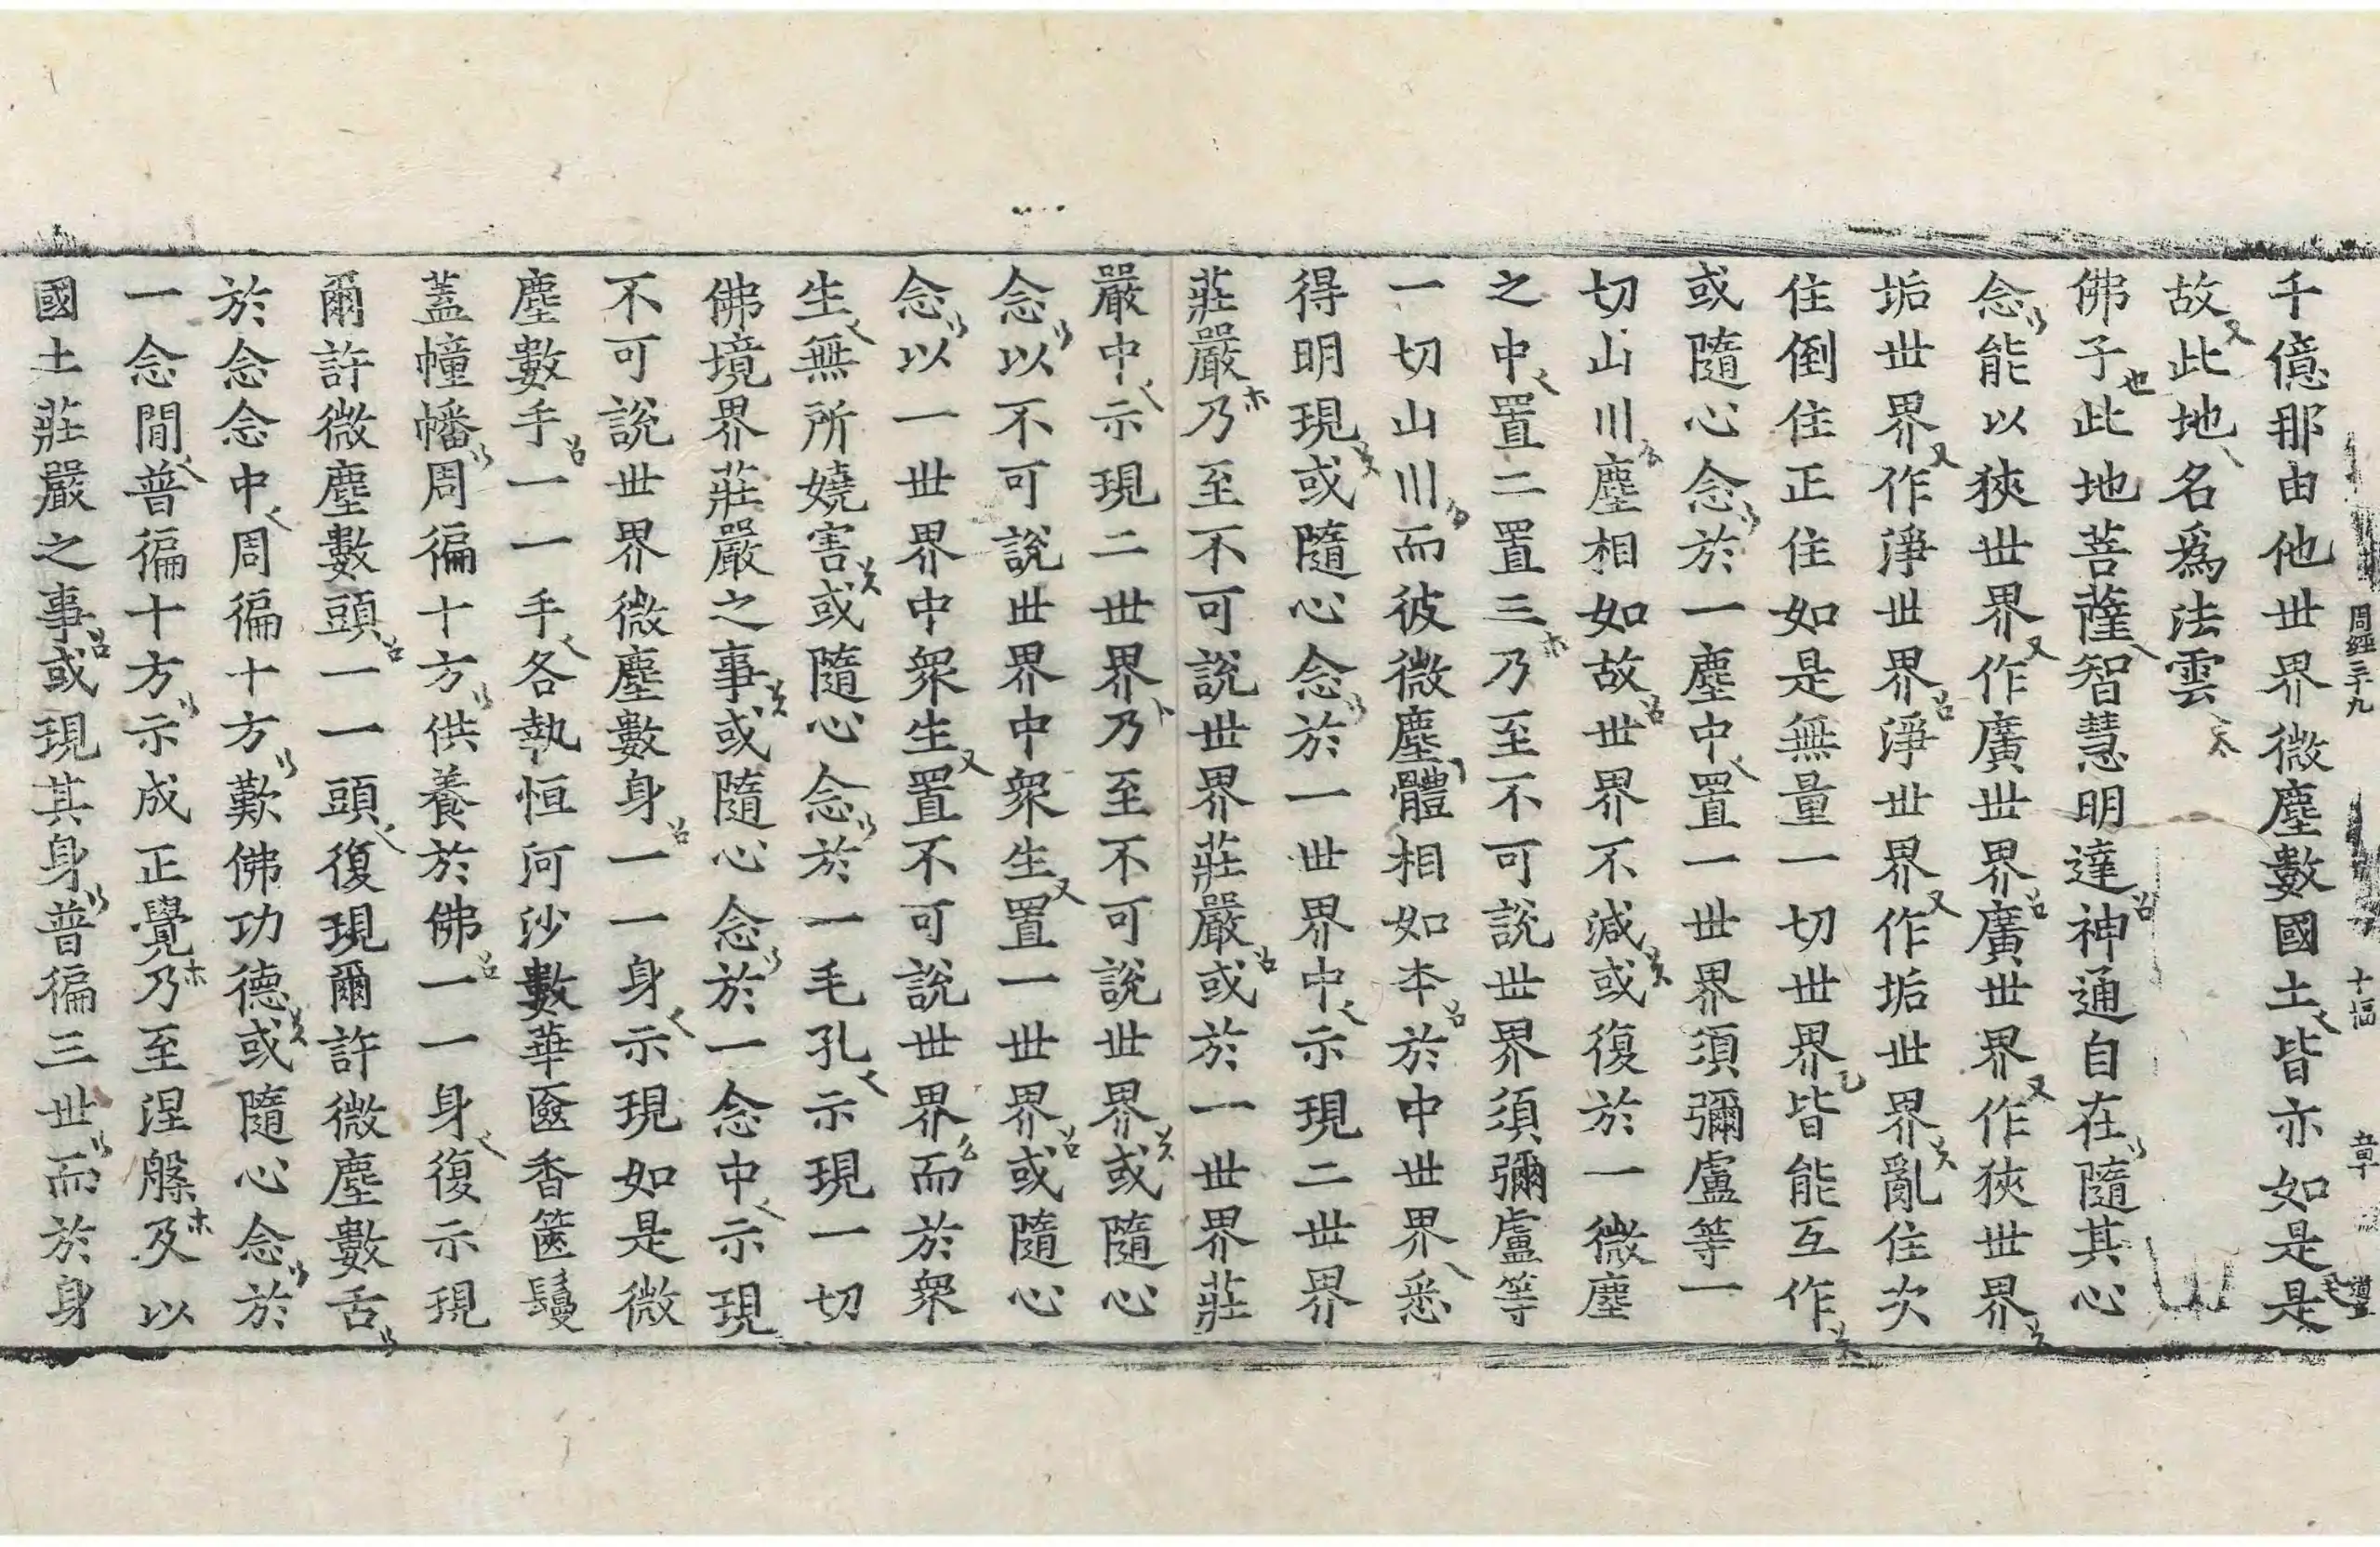 周經三十九
十
章
千億那由他世界微塵數國土皆亦如是是
故此地名爲法雲
佛子此地菩薩智慧明達神通自在隨其心
念能以狹世界作廣世界廣世界作狹世界
垢世界作淨世界淨世界作垢世界亂住次
住倒住正住如是無量一切世界皆能互作
或隨心念於一塵中置一世界須彌盧等一
切山川塵相如故世界不減或復於一微塵
之中置二置三乃至不可說世界須彌盧等
一切山川而彼微塵體相如本於中世界悉
得明現或隨心念於一世界中示現二世界
莊嚴乃至不可說世界莊嚴或於一世界莊
嚴中示現二世界乃至不可說世界或隨心
念以不可說世界中衆生置一世界或隨心
念以一世界中衆生置不可說世界而於衆
生無所嬈害或隨心念於一毛孔示現一切
佛境界莊嚴之事或隨心念於一念中示現
不可說世界微塵數身一一身示現如是微
塵數手一一手各執恒河沙數華奩香篋鬘
蓋幢幡周徧十方供養於佛一一身復示現
爾許微塵數頭一一頭復現爾許微塵數舌
於念念中周徧十方歎佛功德或隨心念於
一念閒普徧十方示成正覺乃至涅槃及以
國土莊嚴之事或現其身普徧三世而於身